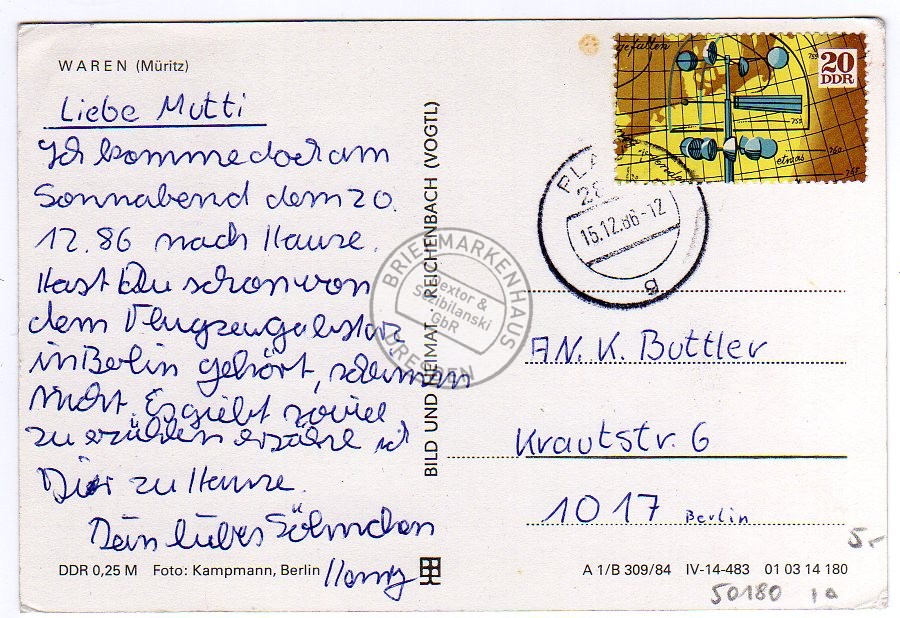 WAREN (Müritz)
Liebe Mutti
Ich komme doch am
Sonnabend dem 20.
12.86 nach Hause.
Hast Du schon von
dem Flugzeugabstur
in Berlin gehört, schlimm
nicht. Es giebt soviel
zu erzählen erzähle ich
Dier zu Hause.
Dein liebes Söhnchen
DDR 0,25 M Foto: Kampmann, Berlin
BILD UND HEIMAT · REICHENBACH (VOGTL)
BRIEFMARKENHAUS
Dextor &
Sezibilanski
GbR
DRESDEN
gefallen
759
20
DDR
759
etwas
760
761
PLA
28
15.12.86-12
AN. K. Buttler
Krautstr. 6
1017 Berlin
5.-
A 1/B 309/84 IV-14-483 01 03 14 180
50180 1a